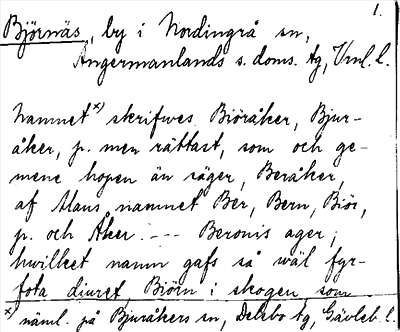 1.
Björnäs, by i Nordingrå sn,
Ångermanlands s. doms. tg, Vnl. l.
Namnet*) skrifwes Biöråker, Bjur-
åker, p. men rättast, som och ge-
mene hopen än säger, Beråker,
af Mans namnet Ber, Bern, Biör,
p. och Åker. --- Beronis ager;
hwilket namn gafs så wäl fyr-
fota diuret, Biörn i skogen som
*) näml. på Bjuråkers sn, Delsbo tg, Gävleb. l.